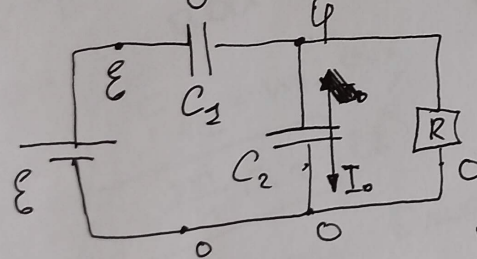 φ
ℰ
C₁
R
C₂
I₀
0
ℰ
0
0